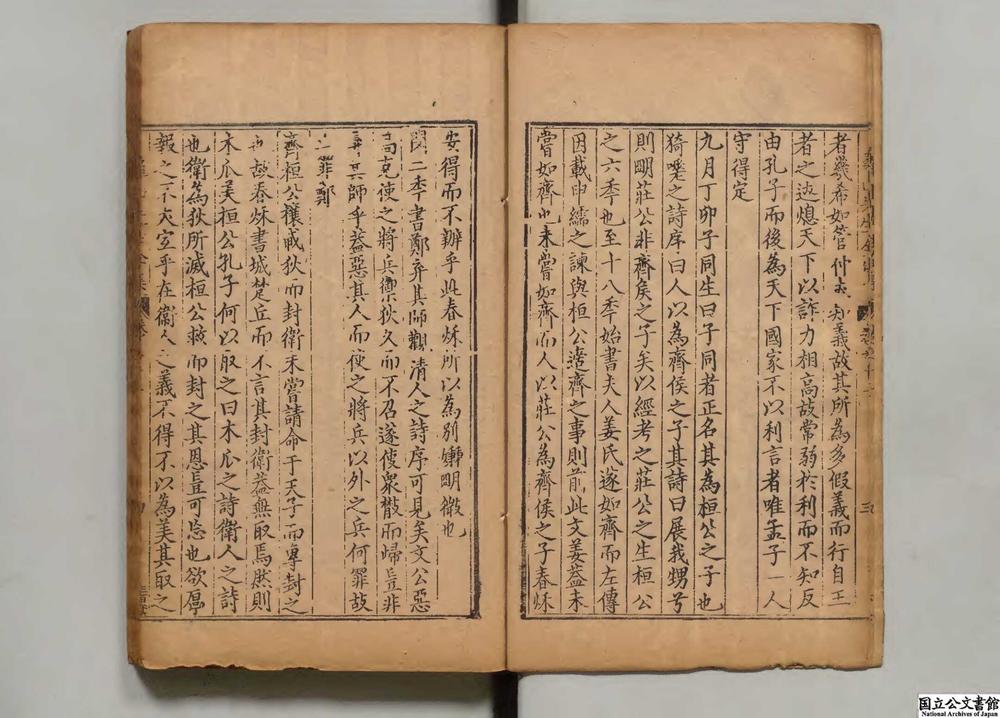 者幾希如管仲亦知義故其所為多假義而行自王
者之迹熄天下以詐力相高故常弱於利而不知反
由孔子而後為天下國家不以利言者唯孟子一人
守得定
九月丁卯子同生曰子同者正名其為桓公之子也
猗嗟之詩序曰人以為齊侯之子其詩曰展我甥兮
則明莊公非齊矦之子矣以經考之莊公之生桓公
之六季也至十八季始書夫人姜氏遂如齊而左傳
因載申繻之諫與桓公遣齊之事則前此文姜葢未
嘗如齊也未嘗如齊而人以莊公為齊侯之子春秌
安得而不辦乎此春秌所以為别嫌明微也
閔二季書鄭弃其師觀清人之詩序可見矣文公惡
高克使之將兵禦狄久而不召遂使衆散而歸豈非
其師乎葢惡其人而使之將兵以外之兵何罪故
罪鄭
齊桓公攘戎狄而封衛未嘗請命于天子而專封之
也故春秌書城楚丘而不言其封衛葢無取焉然則
木瓜美桓公孔子何以取之曰木瓜之詩衛人之詩
也衛為狄所滅桓公救而封之其恩豈可忘也欲厚
報之不亦宜乎在衛人之義不得不以為美其取之
国立公文書館
National Archives of Japan